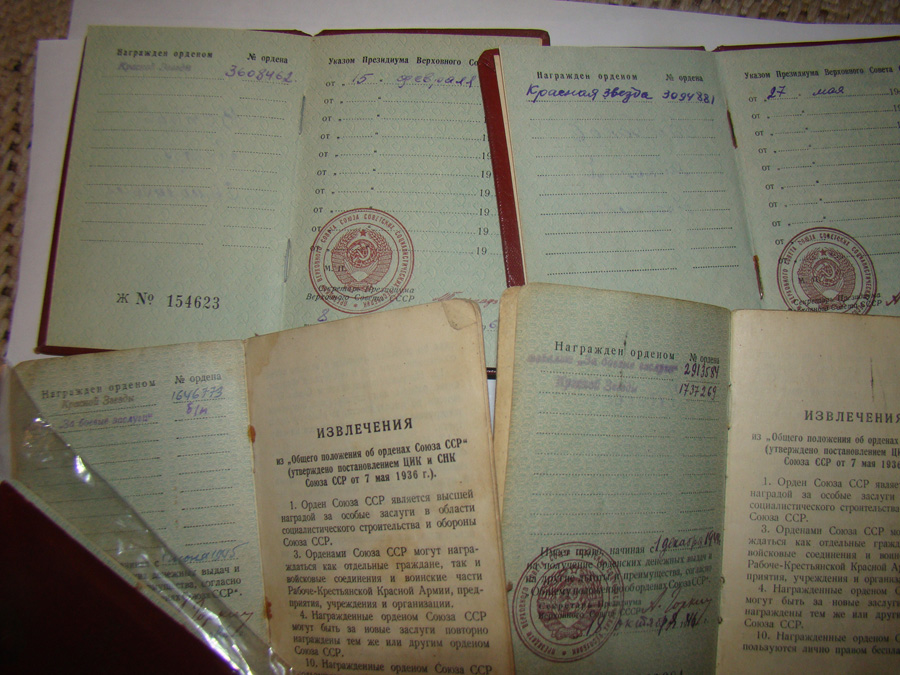 Награжден орденом № ордена
Красной Звезды 3608462
Ж № 154623
Указом Президиума Верховного Со
от 15 февраля
от "
от " 19
от " 19
от " 19
от " 19
от " 19
от " 19
М. П.
Секретарь Президиума
Верховного Совета СССР
Награжден орденом № ордена
Красная звезда 3094881
Указом Президиума Верховного Совета
от 27 мая 19
от "
от "
от "
от "
от "
от "
Секретарь Президиума
Верховного Совета СССР
Награжден орденом № ордена
Красной Звезды 1646773
"За боевые заслуги" б/н
ИЗВЛЕЧЕНИЯ
из „Общего положения об орденах Союза ССР“
(утверждено постановлением ЦИК и СНК
Союза ССР от 7 мая 1936 г.).
1. Орден Союза ССР является высшей
наградой за особые заслуги в области
социалистического строительства и обороны
Союза ССР.
3. Орденами Союза ССР могут награ-
ждаться как отдельные граждане, так и
войсковые соединения и воинские части
Рабоче-Крестьянской Красной Армии, пред-
приятия, учреждения и организации.
4. Награжденные орденом Союза ССР
могут быть за новые заслуги повторно
награждены тем же или другим орденом
Союза ССР.
10. Награжденные орденом Союза ССР
Награжден орденом № ордена
медалью „За боевые заслуги" 2913584
Красной Звезды 1737269
Имеет право, начиная с 1 декабря
на получение орденских денежных выдач и
на другие льготы и преимущества, согласно
Общему положению об орденах Союза ССР".
Секретарь Президиума
Верховного Совета СССР
А. Горкин
ИЗВЛЕЧЕНИЯ
из „Общего положения об орденах
(утверждено постановлением ЦИК
Союза ССР от 7 мая 1936
1. Орден Союза ССР являе
наградой за особые заслуги
социалистического строительства
Союза ССР.
3. Орденами Союза ССР мо
ждаться как отдельные гражда
войсковые соединения и вои
Рабоче-Крестьянской Красной А
приятия, учреждения и организаци
4. Награжденные орденом С
могут быть за новые заслуги
награждены тем же или други
Союза ССР.
10. Награжденные орденом С
пользуются лично правом беспла